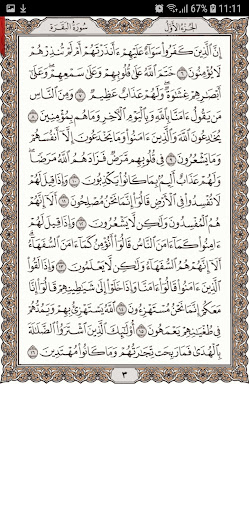 67% 11:11
الجزء الأول سورة البقرة
إِنَّ الَّذِينَ كَفَرُوا سَوَاءٌ عَلَيْهِمْ ءَأَنذَرْتَهُمْ أَمْ لَمْ تُنذِرْهُمْ
لَا يُؤْمِنُونَ ٦ خَتَمَ اللَّهُ عَلَىٰ قُلُوبِهِمْ وَعَلَىٰ سَمْعِهِمْ وَعَلَىٰ
أَبْصَارِهِمْ غِشَاوَةٌ وَلَهُمْ عَذَابٌ عَظِيمٌ ٧ وَمِنَ النَّاسِ
مَن يَقُولُ ءَامَنَّا بِاللَّهِ وَبِالْيَوْمِ الْآخِرِ وَمَا هُم بِمُؤْمِنِينَ ٨
يُخَادِعُونَ اللَّهَ وَالَّذِينَ ءَامَنُوا وَمَا يَخْدَعُونَ إِلَّا أَنفُسَهُمْ
وَمَا يَشْعُرُونَ ٩ فِي قُلُوبِهِم مَّرَضٌ فَزَادَهُمُ اللَّهُ مَرَضًا
وَلَهُمْ عَذَابٌ أَلِيمٌ بِمَا كَانُوا يَكْذِبُونَ ١٠ وَإِذَا قِيلَ لَهُمْ
لَا تُفْسِدُوا فِي الْأَرْضِ قَالُوا إِنَّمَا نَحْنُ مُصْلِحُونَ ١١ أَلَا إِنَّهُمْ
هُمُ الْمُفْسِدُونَ وَلَٰكِن لَّا يَشْعُرُونَ ١٢ وَإِذَا قِيلَ لَهُمْ
ءَامِنُوا كَمَا ءَامَنَ النَّاسُ قَالُوا أَنُؤْمِنُ كَمَا ءَامَنَ السُّفَهَاءُ
أَلَا إِنَّهُمْ هُمُ السُّفَهَاءُ وَلَٰكِن لَّا يَعْلَمُونَ ١٣ وَإِذَا لَقُوا
الَّذِينَ ءَامَنُوا قَالُوا ءَامَنَّا وَإِذَا خَلَوْا إِلَىٰ شَيَاطِينِهِمْ قَالُوا إِنَّا
مَعَكُمْ إِنَّمَا نَحْنُ مُسْتَهْزِءُونَ ١٤ اللَّهُ يَسْتَهْزِئُ بِهِمْ وَيَمُدُّهُمْ
فِي طُغْيَانِهِمْ يَعْمَهُونَ ١٥ أُولَٰئِكَ الَّذِينَ اشْتَرَوُا الضَّلَالَةَ
بِالْهُدَىٰ فَمَا رَبِحَت تِّجَارَتُهُمْ وَمَا كَانُوا مُهْتَدِينَ ١٦
٣